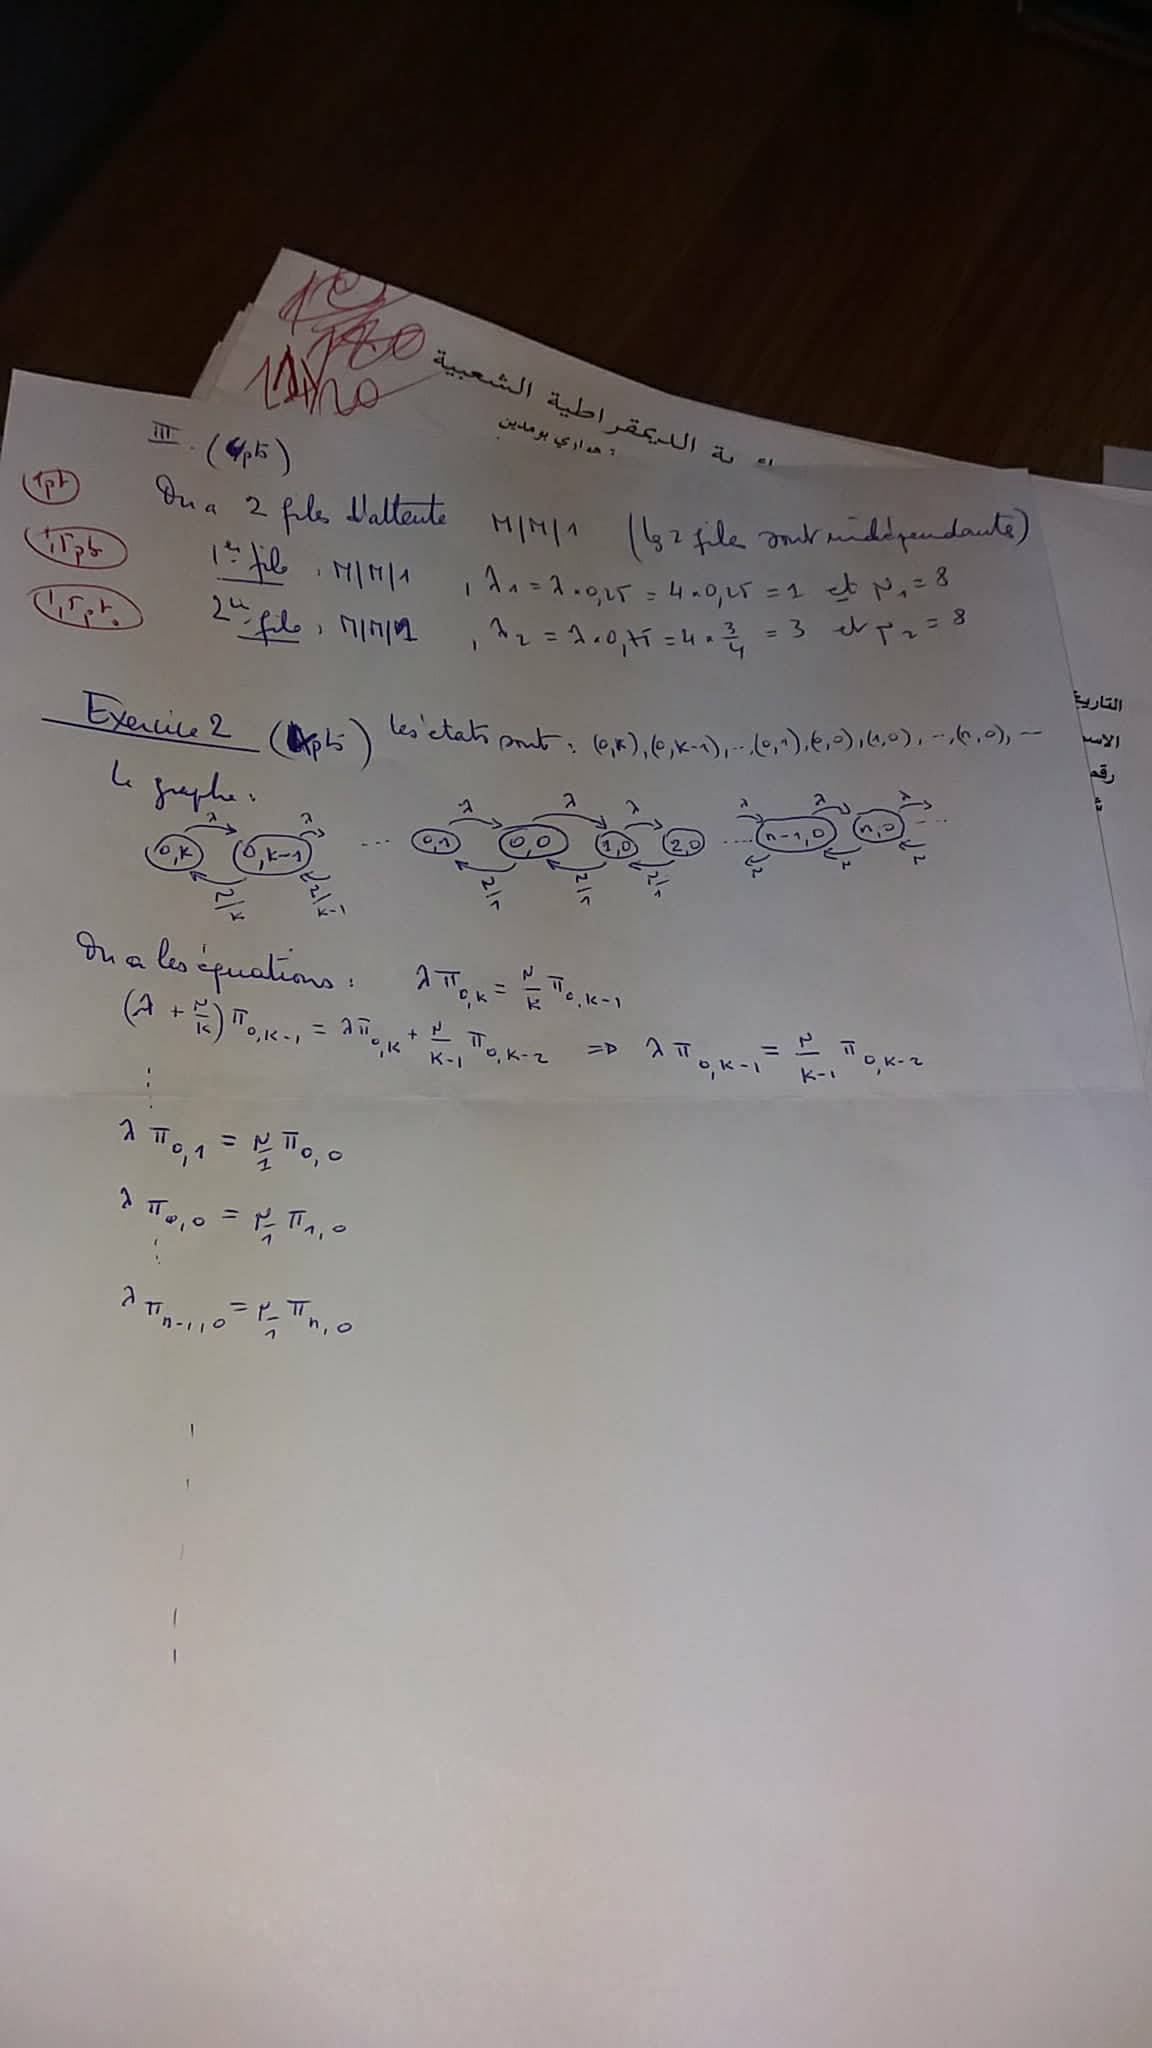 12/20
ـة الديمقراطية الشعبية
هواري بومدين
III. (4pts)
1pt
On a 2 files d'attente M/M/1 (les 2 files sont indépendantes)
1,5pts
1ère file : M/M/1 , λ1 = λ×0,25 = 4×0,25 = 1 et μ1 = 8
1,5pt.
2ème file : M/M/1 , λ2 = λ×0,75 = 4×3/4 = 3 et μ2 = 8
التاريخ
رقم
Exercice 2 (4pts) les états sont : (0,K), (0,K-1), ..., (0,1), (0,0), (1,0), ..., (n,0), ...
Le graphe :
λ λ λ λ λ λ λ λ
0,K 0,K-1 ... 0,1 0,0 1,0 2,0 .... n-1,0 n,0 ....
μ/K μ/K-1 μ/1 μ/1 μ/1 μ μ μ
On a les équations : λπ0,K = μ/K π0,K-1
(λ + μ/K)π0,K-1 = λπ0,K + μ/K-1 π0,K-2 => λπ0,K-1 = μ/K-1 π0,K-2
λπ0,1 = μ/1 π0,0
λπ0,0 = μ/1 π1,0
λπn-1,0 = μ/1 πn,0